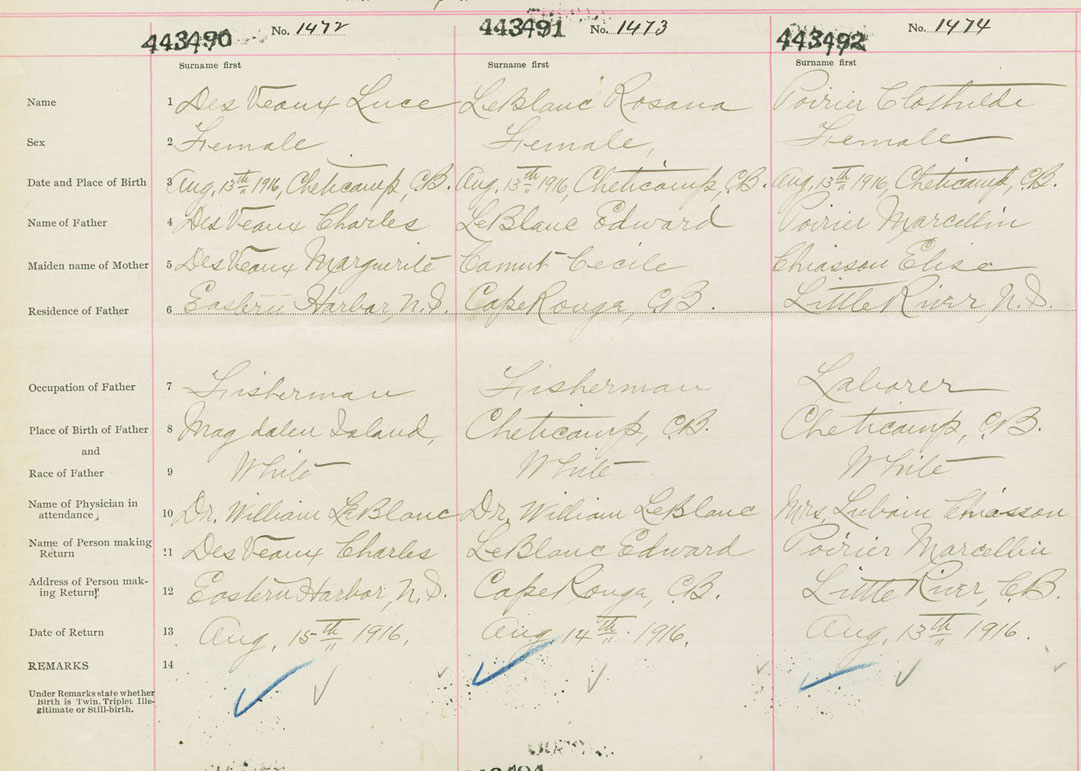 443490 No. 1472 443491 No. 1473 443492 No. 1474
Surname first Surname first Surname first
Name 1 DesVeaux Luce LeBlanc Rosana Poirier Clothilde
Sex 2 Female Female, Female
Date and Place of Birth 3 Aug, 13th 1916, Cheticamp, C.B. Aug, 13th 1916, Cheticamp, C.B. Aug, 13th 1916, Cheticamp, C.B.
Name of Father 4 DesVeaux Charles LeBlanc Edward Poirier Marcellin
Maiden name of Mother 5 DesVeaux Marguerite Camut Cecile Chiasson Elise
Residence of Father 6 Eastern Harbor, N.S. Cape Rouge, C.B. Little River, N.S.
Occupation of Father 7 Fisherman Fisherman Laborer
Place of Birth of Father 8 Magdalen Island, Cheticamp, C.B. Cheticamp, C.B.
and
Race of Father 9 White White White
Name of Physician in
attendance 10 Dr. William LeBlanc Dr. William LeBlanc Mrs. Lubain Chiasson
Name of Person making
Return 11 DesVeaux Charles LeBlanc Edward Poirier Marcellin
Address of Person mak-
ing Return 12 Eastern Harbor, N.S. Cape Rouge, C.B. Little River, C.B.
Date of Return 13 Aug, 15th 1916, Aug, 14th 1916, Aug, 13th 1916.
REMARKS 14
Under Remarks state whether
Birth is Twin, Triplet Ille-
gitimate or Still-birth.